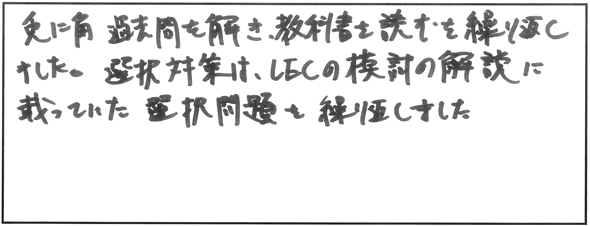 兎に角 過去問を解き、教科書を読むを繰り返し
ました。選択対策は、LECの模試の解説に
載っていた 選択問題を 繰り返しました